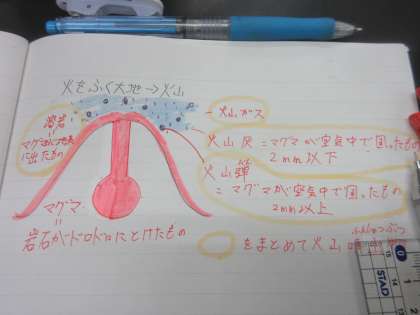 火をふく大地→火山
溶岩
=
マグマが地表に
出たもの
火山ガス
火山灰=マグマが空気中で固ったもの
2mm以下
火山弾
=マグマが空気中で固ったもの
2mm以上
マグマ
=
岩石がドロドロにとけたもの
ふんしゅつぶつ
をまとめて火山噴
STAD